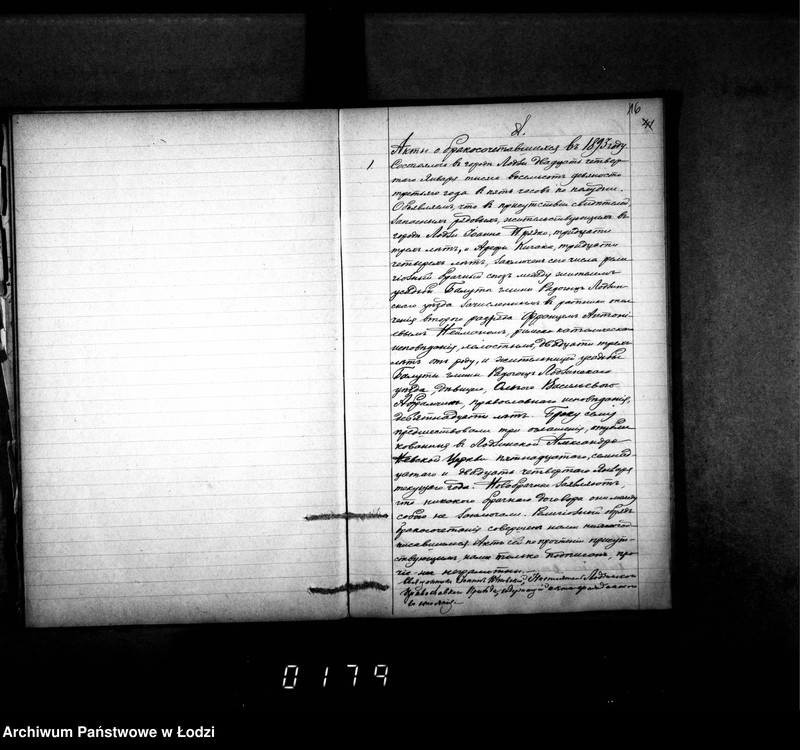 116
Акты о бракосочетавшихся въ 1893 году.
1. Состоялось въ городѣ Лодзи двадцать четвер-
таго Января тысяча восемьсотъ девяносто
третьяго года въ пять часовъ по полудни.
Объявляемъ, что въ присутствіи свидѣтелей,
запасныхъ рядовыхъ, жительствующихъ въ
городѣ Лодзи Іоанна тридцати
трехъ лѣтъ, и тридцати
четырехъ лѣтъ, заключенъ сего числа рели-
гіозный брачный союзъ между жителемъ
усадьбы Балута гмины Радогощъ Лодзин-
скаго уѣзда зачисленнымъ въ ратники опол-
ченія втораго разряда Францемъ Антоні-
евымъ римско католическаго
исповѣданія, холостымъ, двадцати трехъ
лѣтъ отъ роду, и жительницей усадьбы
Балуты гмины Радогощъ Лодзинскаго
уѣзда дѣвицею, Ольгою Васильевою
православнаго исповѣданія,
девятнадцати лѣтъ. Браку сему
предшествовали три оглашенія, опубли-
кованныя въ Лодзинской Александро-
Невской Церкви пятнадцатаго, семнад-
цатаго и двадцать четвертаго Января
текущаго года. Новобрачные заявляютъ,
что никакого брачнаго договора они между
собою не заключали. Религіозный обрядъ
бракосочетанія совершенъ нами
Актъ сей по прочтеніи присут-
ствующимъ, нами только подписанъ, про-
чіе-же неграмотны.
Лодзинскаго
православнаго прихода,
0179
Archiwum Państwowe w Łodzi